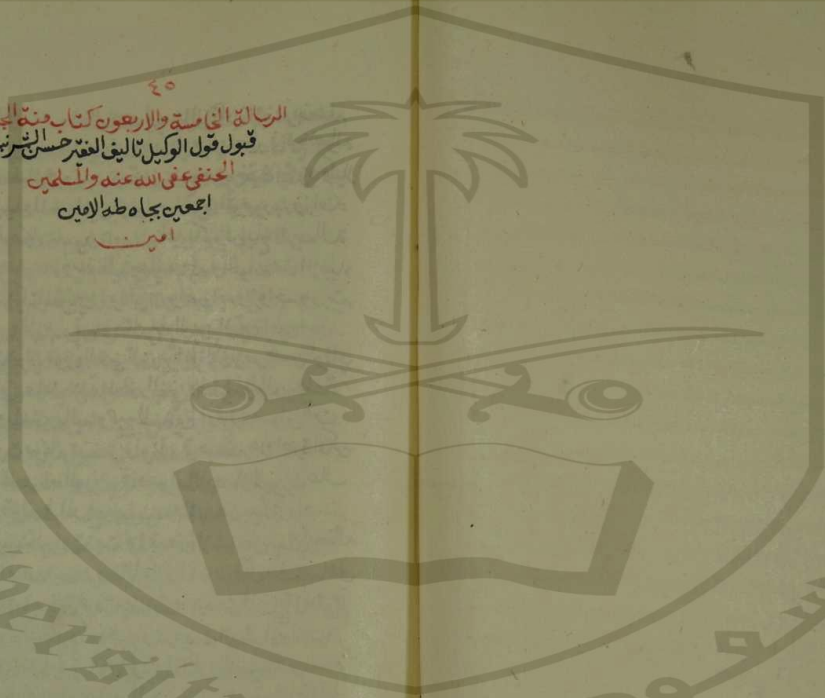 ٤٥
الرسالة الخامسة والاربعون كتاب منة
قبول قول الوكيل تاليف الفقير حسن
الحنفي عفى الله عنه والمسلمين
اجمعين بجاه طه الامين
امين